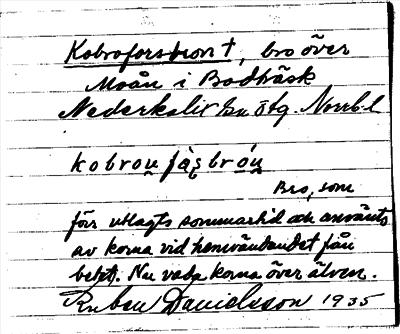 Kobroforsbron †, bro över
Moån i Bodträsk
Nederkalix sn Ötg. Norrb.l
kobron fàṣbrón
Bro, som
förr utlagts sommartid och använts
av korna vid hemvändandet från
betet. Nu vada korna över älven.
Ruben Danielsson 1935